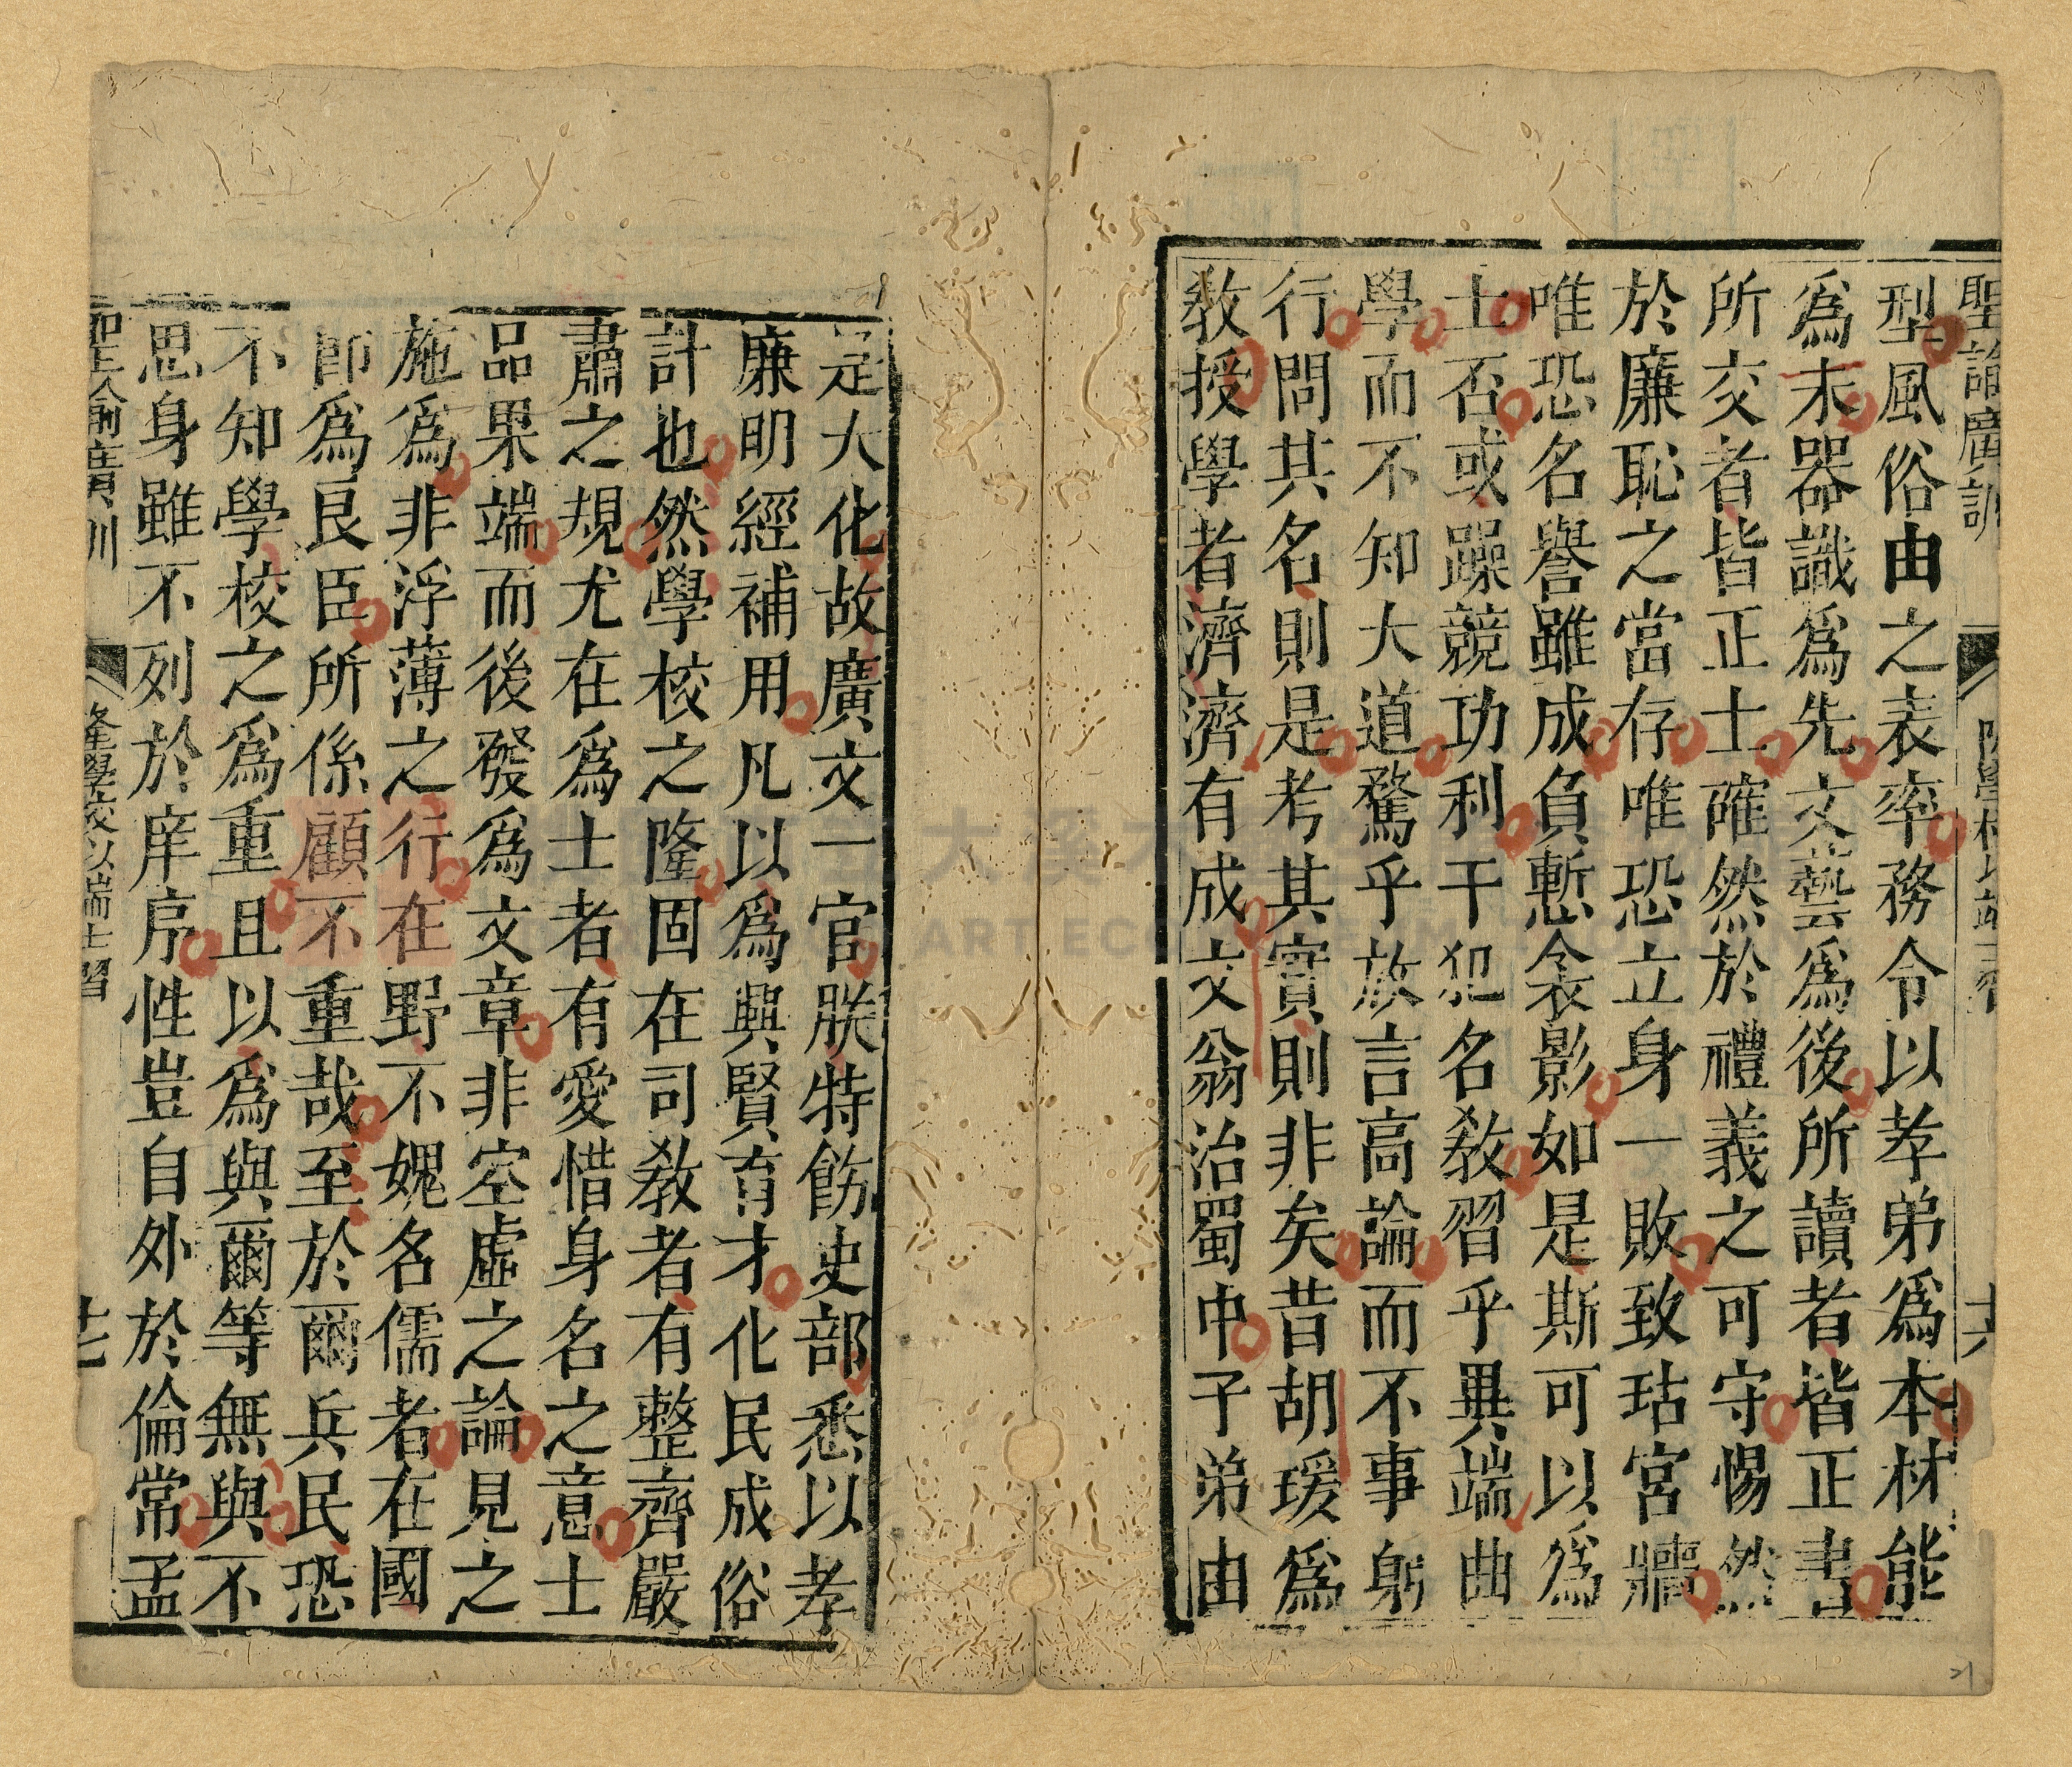 聖諭廣訓
隆學校以端士習
十六
型風俗由之表率務令以孝弟爲本材能
爲末器識爲先文藝爲後所讀者皆正書
所交者皆正士確然於禮義之可守惕然
於廉恥之當存唯恐立身一敗致玷宮牆
唯恐名譽雖成負慙衾影如是斯可以爲
士否或躁競功利干犯名教習乎異端曲
學而不知大道騖乎放言高論而不事躬
行問其名則是考其實則非矣昔胡瑗爲
教授學者濟濟有成文翁治蜀中子弟由
是大化故廣文一官朕特飭吏部悉以孝
廉明經補用凡以爲興賢育才化民成俗
計也然學校之隆固在司教者有整齊嚴
肅之規尤在爲士者有愛惜身名之意士
品果端而後發爲文章非空虛之論見之
施爲非浮薄之行在野不媿名儒者在國
即爲良臣所係顧不重哉至於爾兵民恐
不知學校之爲重且以爲與爾等無與不
思身雖不列於庠序性豈自外於倫常孟
聖諭廣訓
隆學校以端士習
十七
大溪
ART EC
21